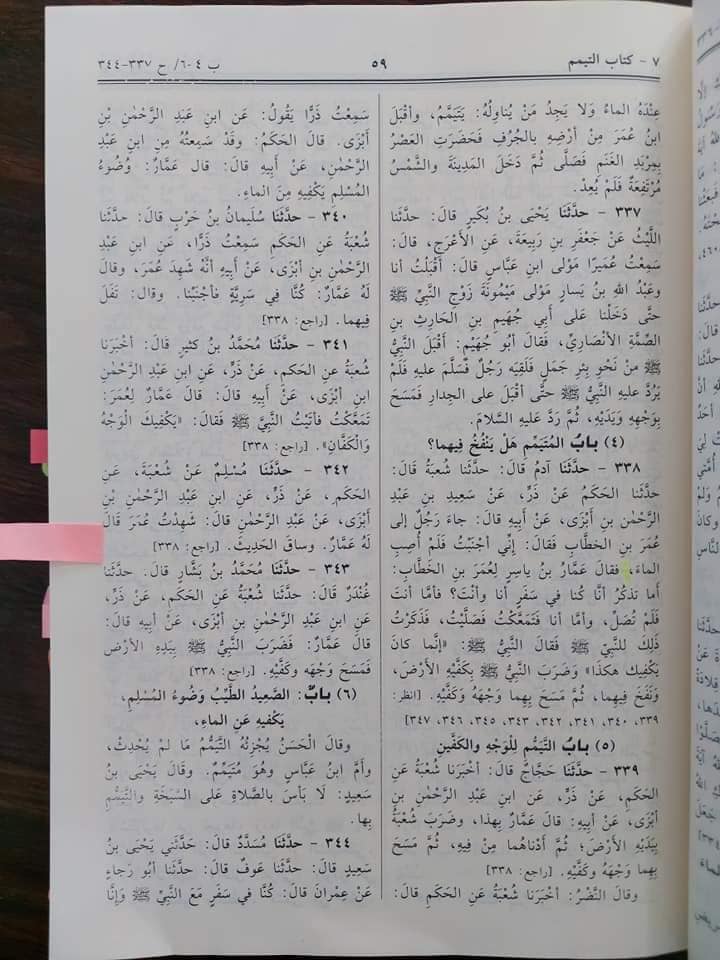 ٧ - كتاب التيمم
٥٩
ب ٤-٦/ ح ٣٣٧-٣٤٤
عِنْدَهُ الماءُ وَلا يَجِدُ مَنْ يُناوِلُهُ: يَتَيَمَّمُ، وأقْبَلَ
ابنُ عُمَرَ مِنْ أرْضِهِ بِالجُرُفِ فَحَضَرَتِ العَصْرُ
بِمِرْبَدِ الغَنَمِ فَصَلَّى ثُمَّ دَخَلَ المَدِينَةَ والشَّمْسُ
مُرْتَفِعَةٌ فَلَمْ يُعِدْ.
٣٣٧ - حدَّثَنَا يَحْيَى بنُ بُكَيرٍ قالَ: حدَّثَنا
اللَّيْثُ عَنْ جَعْفَرِ بنِ رَبِيعَةَ، عَنِ الأعْرَجِ، قالَ:
سَمِعْتُ عُمَيرًا مَوْلى ابنِ عَبَّاسٍ قالَ: أقْبَلْتُ أنا
وعَبْدُ اللهِ بنُ يَسارٍ مَوْلى مَيْمُونَةَ زَوْجِ النَّبِيِّ ﷺ
حتَّى دَخَلْنا عَلى أبي جُهَيمِ بنِ الحَارِثِ بنِ
الصِّمَّةِ الأنْصَارِيِّ، فَقالَ أبُو جُهَيْمٍ: أقْبَلَ النَّبِيُّ
ﷺ مِنْ نَحْوِ بِئْرِ جَمَلٍ فَلَقِيَهُ رَجُلٌ فَسَلَّمَ عليهِ فَلَمْ
يَرُدَّ عليهِ النَّبِيُّ ﷺ حتَّى أقْبَلَ عَلى الجِدارِ فَمَسَحَ
بِوَجْهِهِ وَيَدَيْهِ، ثُمَّ رَدَّ عَلَيهِ السَّلامَ.
(٤) بابُ المُتَيَمِّمِ هَلْ يَنْفُخُ فِيهِما؟
٣٣٨ - حدَّثَنَا آدمُ قالَ: حدَّثَنا شُعْبَةُ قالَ:
حدَّثَنا الحَكَمُ عَنْ ذَرٍّ، عَنْ سَعِيدِ بنِ عَبْدِ
الرَّحْمٰنِ بنِ أبْزَى، عَنْ أبِيهِ قالَ: جاءَ رَجُلٌ إلى
عُمَرَ بنِ الخطَّابِ فَقالَ: إنِّي أجْنَبْتُ فَلَمْ أُصِبِ
الماءَ، فقالَ عَمَّارُ بنُ ياسِرٍ لِعُمَرَ بنِ الخَطَّابِ:
أما تذكُرُ أنَّا كُنا في سَفَرٍ أنا وأنْتَ؟ فأمَّا أنْتَ
فَلَمْ تُصَلِّ، وأمَّا أنا فَتَمَعَّكْتُ فَصَلَّيْتُ، فَذَكَرْتُ
ذلِكَ لِلنَّبِيِّ ﷺ فَقالَ النَّبِيُّ ﷺ: «إنَّما كانَ
يَكْفِيكَ هكَذَا» وَضَرَبَ النَّبِيُّ ﷺ بِكَفَّيْهِ الأرْضَ،
وَنَفَخَ فِيهِما، ثُمَّ مَسَحَ بِهِما وَجْهَهُ وَكَفَّيْهِ. [انظر:
٣٣٩، ٣٤٠، ٣٤١، ٣٤٢، ٣٤٣، ٣٤٥، ٣٤٦، ٣٤٧]
(٥) بابُ التَّيَمُّمِ لِلْوَجْهِ والكَفَّينِ
٣٣٩ - حدَّثَنَا حَجَّاجٌ قالَ: أخْبَرَنا شُعْبَةُ عَنِ
الحَكَمِ، عَنْ ذَرٍّ، عَنِ ابنِ عَبْدِ الرَّحْمٰنِ بنِ
أبْزَى، عَنْ أبِيهِ: قالَ: قالَ عَمَّارٌ بِهذا، وضَرَبَ شُعْبَةُ
بِيَدَيْهِ الأرْضَ؛ ثُمَّ أدْناهُما مِنْ فِيهِ، ثُمَّ مَسَحَ
بِهِما وَجْهَهُ وكَفَّيْهِ. [راجع: ٣٣٨]
وقالَ النَّضْرُ: أخْبَرَنا شُعْبَةُ عَنِ الحَكَمِ قالَ:
سَمِعْتُ ذَرًّا يَقُولُ: عَنِ ابنِ عَبْدِ الرَّحْمٰنِ بْنِ
أبْزَى. قالَ الحَكَمُ: وَقَدْ سَمِعتُهُ مِنِ ابنِ عَبْدِ
الرَّحْمٰنِ، عَنْ أبِيهِ قالَ: قال عَمَّارٌ: وُضُوءُ
المُسْلِمِ يَكْفِيهِ مِنَ الماءِ.
٣٤٠ - حدَّثَنَا سُلَيمانُ بنُ حَرْبٍ قالَ: حدَّثَنا
شُعْبَةُ عَنِ الحَكَمِ سَمِعْتُ ذَرًّا، عَنِ ابنِ عَبْدِ
الرَّحْمٰنِ بنِ أبْزَى، عَنْ أبِيهِ أنَّهُ شَهِدَ عُمَرَ، وقالَ
لَهُ عَمَّارٌ: كُنَّا في سَرِيَّةٍ فأجْنَبْنا. وقال: تَفَلَ
فِيهِما. [راجع: ٣٣٨]
٣٤١ - حدَّثَنَا مُحَمَّدُ بنُ كَثِيرٍ قالَ: أخْبَرَنا
شُعْبَةُ عنِ الحَكمِ، عَنْ ذَرٍّ، عَنِ ابنِ عَبدِ الرَّحْمٰنِ
ابنِ أبْزَى، عَنْ أبِيهِ قالَ: قالَ عَمَّارٌ لِعُمَرَ:
تَمَعَّكْتُ فأتَيْتُ النَّبِيَّ ﷺ فَقالَ: «يَكْفِيكَ الْوَجْهُ
وَالْكَفَّانِ». [راجع: ٣٣٨]
٣٤٢ - حدَّثَنَا مُسْلِمٌ عَنْ شُعْبَةَ، عَنِ
الحَكَمِ، عَنْ ذَرٍّ، عَنِ ابنِ عَبْدِ الرَّحْمٰنِ بْنِ
أبْزَى، عَنْ عَبْدِ الرَّحْمٰنِ قالَ: شَهِدْتُ عُمَرَ قَالَ
لَهُ عَمَّارٌ. وساقَ الحَدِيثَ. [راجع: ٣٣٨]
٣٤٣ - حدَّثَنَا مُحَمَّدُ بنُ بَشَّارٍ قالَ. حدَّثَنا
غُنْدَرٌ قالَ: حدَّثَنا شُعْبَةُ عَنِ الحَكَمِ، عَنْ ذَرٍّ،
عَنِ ابنِ عَبْدِ الرَّحْمٰنِ بنِ أبْزَى، عَنْ أبِيهِ قالَ:
قالَ عَمَّارٌ: فَضَرَبَ النَّبِيُّ ﷺ بِيَدِهِ الأرْضَ
فَمَسَحَ وَجْهَهُ وكَفَّيْهِ. [راجع: ٣٣٨]
(٦) بابٌ: الصَّعِيدُ الطَّيِّبُ وَضُوءُ المُسْلِمِ،
يَكْفِيهِ عَنِ الماءِ،
وقالَ الْحَسَنُ يُجْزِئُهُ التَّيَمُّمُ مَا لمْ يُحْدِثْ،
وأمَّ ابنُ عَبَّاسٍ وهُوَ مُتَيَمِّمٌ. وقالَ يَحْيَى بنُ
سَعِيدٍ: لَا بَأسَ بالصَّلاةِ عَلى السَّبَخَةِ والتَّيَمُّمِ
بِها.
٣٤٤ - حدَّثَنَا مُسَدَّدٌ قالَ: حَدَّثَني يَحْيَى بنُ
سَعِيدٍ قالَ: حدَّثَنا عَوفٌ قالَ: حدَّثَنا أبُو رَجاءٍ
عَنْ عِمْرانَ قالَ: كُنَّا في سَفَرٍ مَعَ النَّبِيِّ ﷺ وَإنَّا